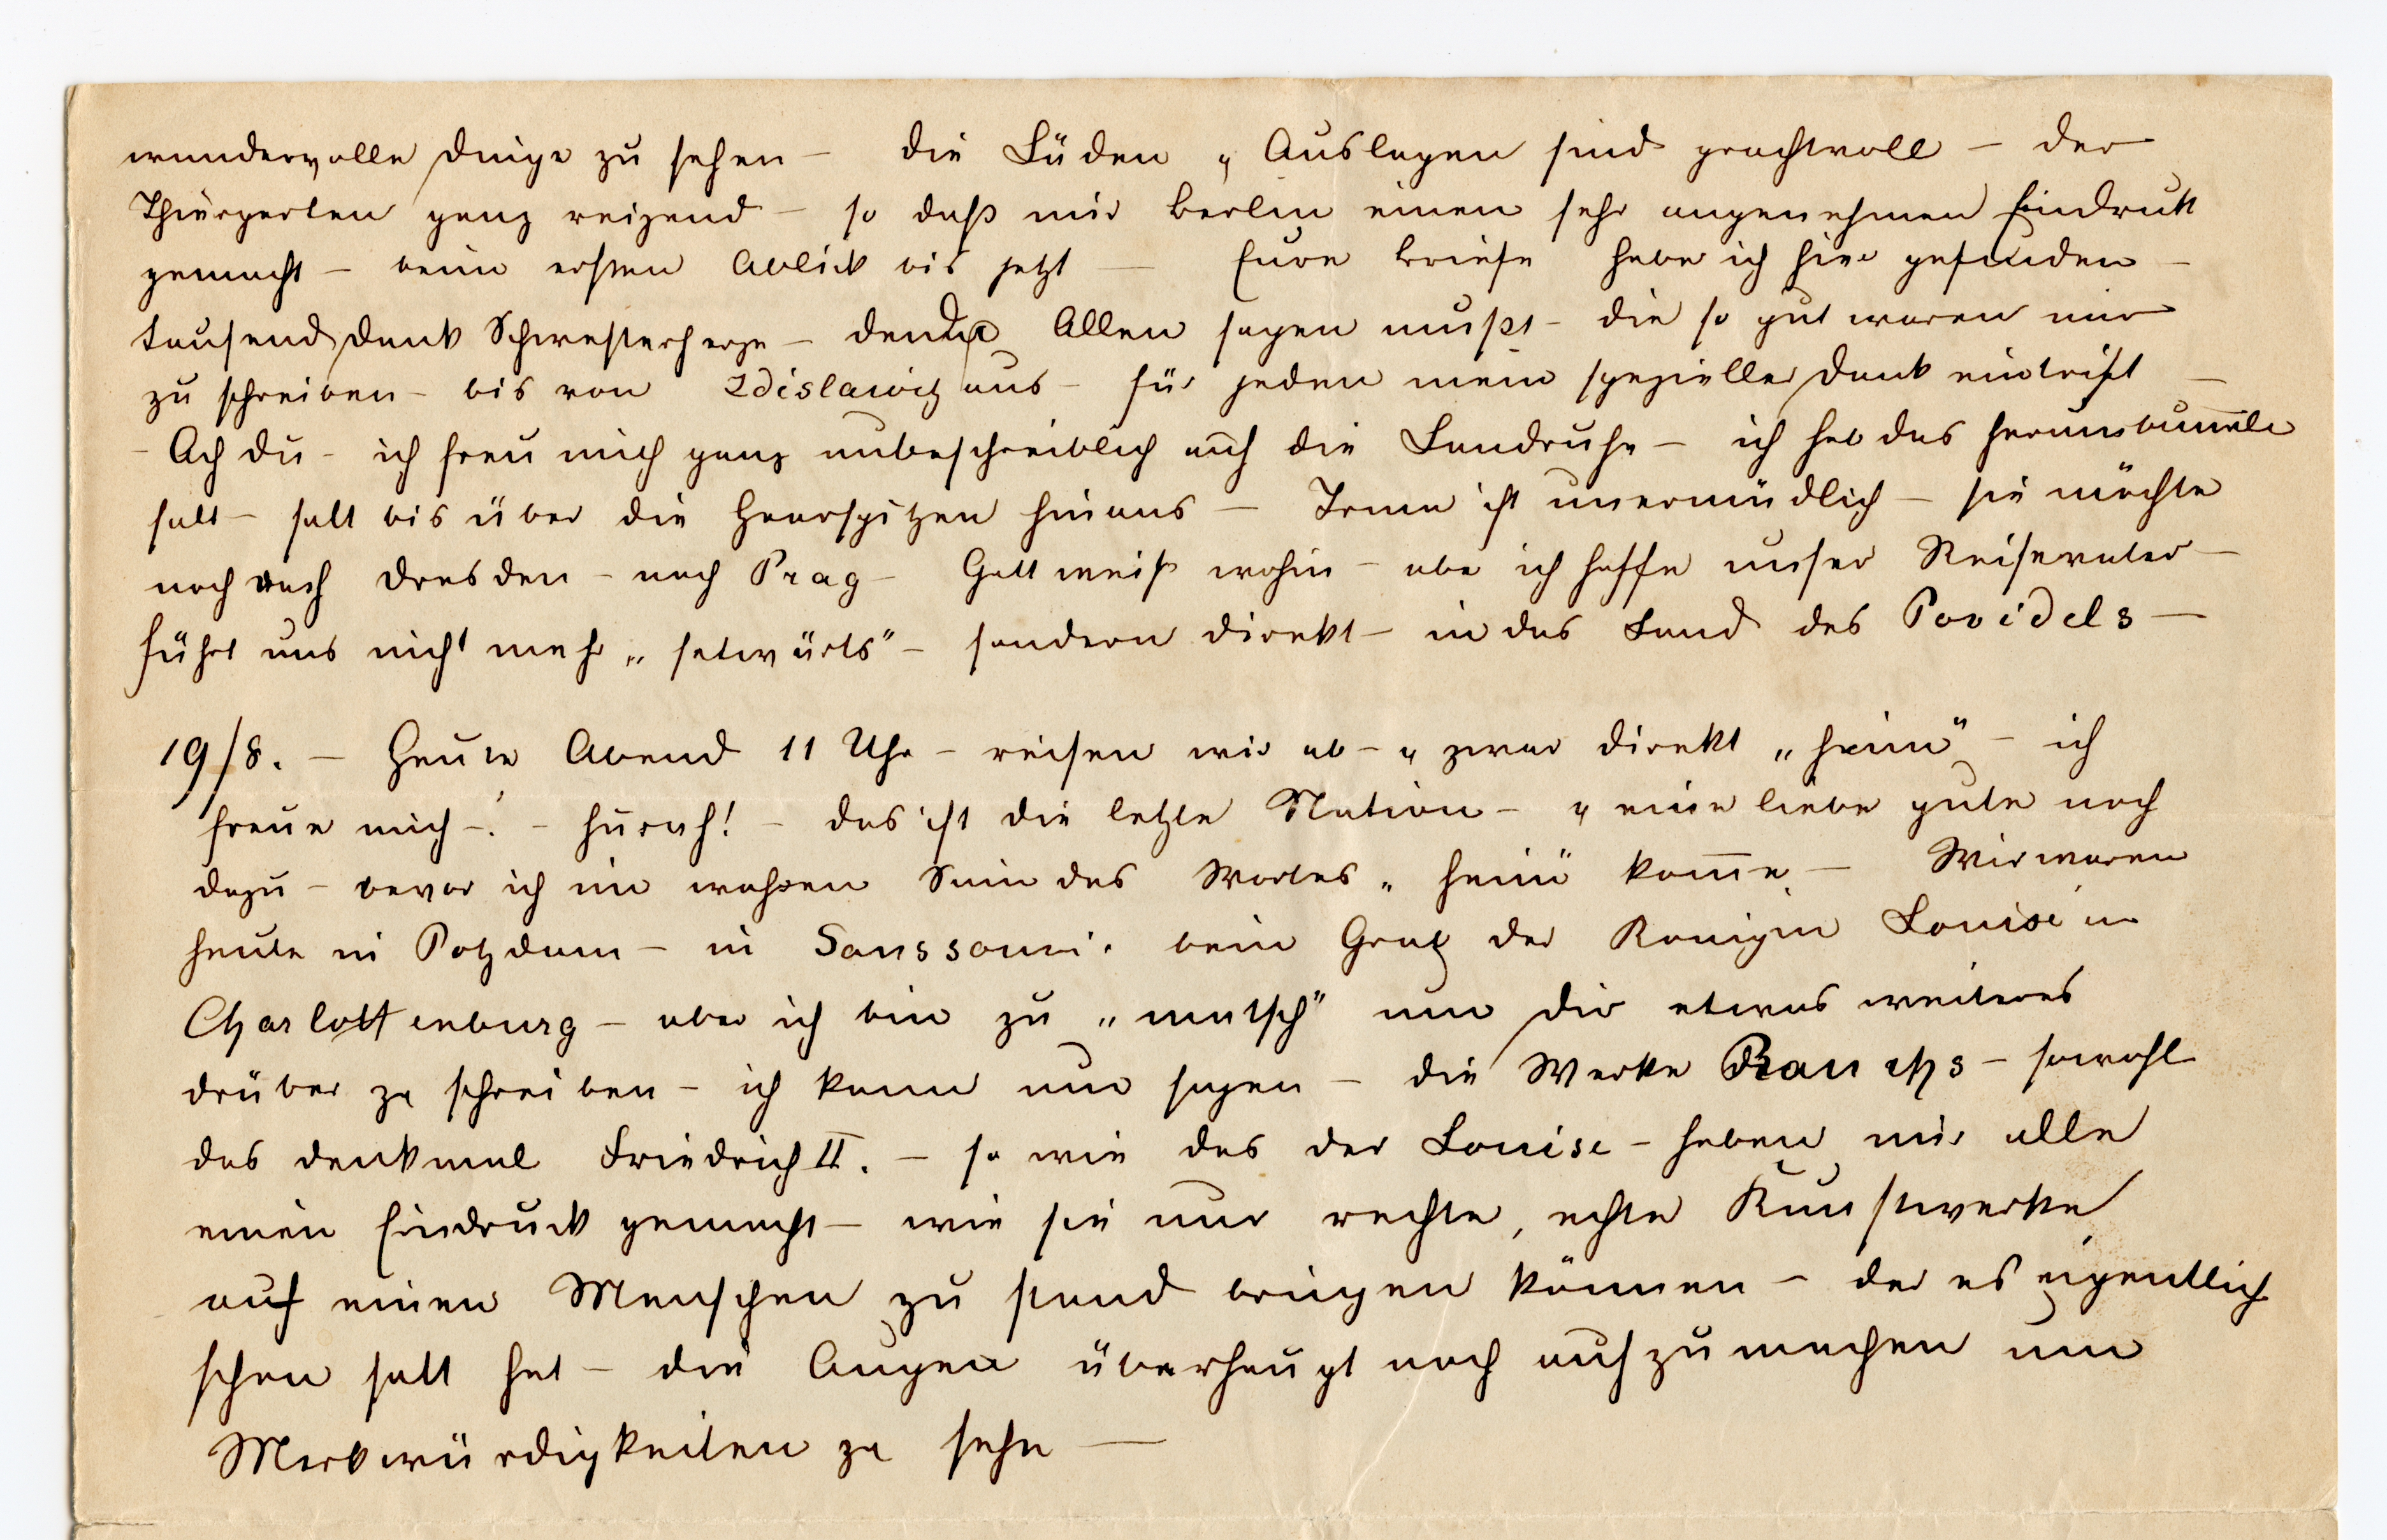 wundervolle Dinge zu sehen – die Läden u Auslagen sind prachtvoll – der
Thiergarten ganz reizend – so daß mir Berlin einen sehr angenehmen Eindruk
gemacht – beim ersten Ablick bis jetzt – Eure Briefe habe ich hier gefunden –
tausend Dank Schwesterherze – den Du Allen sagen mußt – die so gut waren mir
zu schreiben – bis von Zdislawitz aus – für jeden mein spezieller Dank eintrift –
– Ach du – ich freu mich ganz unbeschreiblich auf die Landruhe – ich hab das herumbum̅eln
satt – satt bis über die Haarspitzen hinaus – Irma ist unermüdlich – sie möchte
noch nach Dresden – nach Prag – Gott weiß wohin – aber ich hoffe unser Reisevater –
führt uns nicht mehr „satwärts" – sondern direkt – in das Land des Povidels –
19/8. – Heute Abend 11 Uhr – reisen wir ab – u zwar direkt „heim" – ich
freue mich –! – hurah! – das ist die letzte Station – u eine liebe gute noch
dazu – bevor ich im wahren Sinn des Wortes „heim" kom̅e – Wir waren
heute in Potzdam – in Sanssouci. beim Grab der Konigin Louise in
Charlottenburg – aber ich bin zu „matsch" um Dir etwas weiteres
drüber zu schreiben – ich kann nur sagen – die Werke Rauchs – sowohl
das Denkmal Friedrich II. – so wie das der Louise – haben mir alle
einen Eindruck gemacht – wie sie nur rechte, echte Kunstwerke
auf einen Menschen zu stand bringen können – der es eigentlich
schon satt hat – die Augen überhaupt noch aufzumachen um
Merkwürdigkeiten zu sehn –